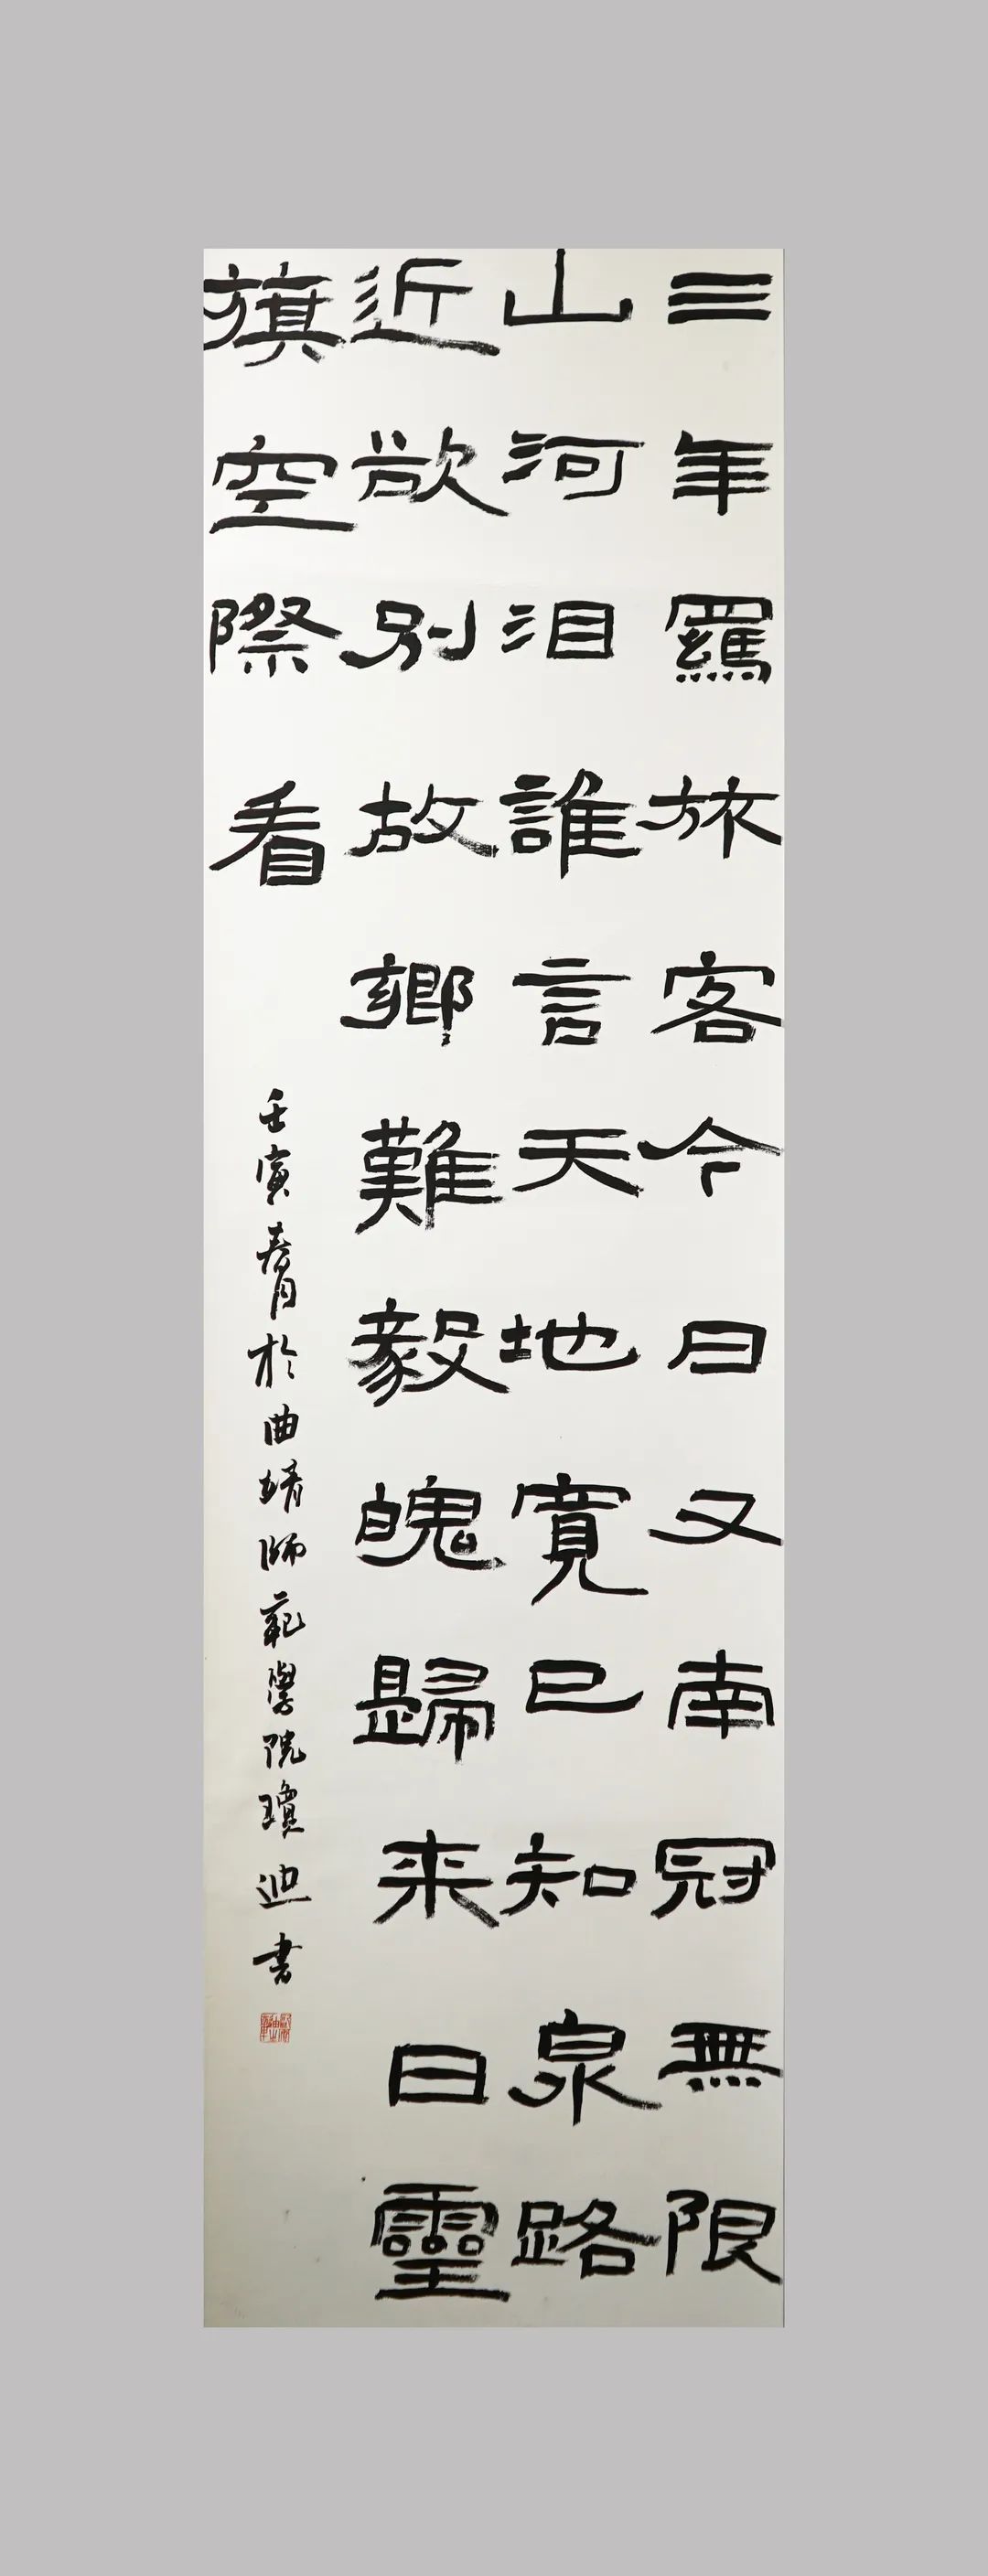 三年羈旅客今日又南冠無限
山河泪誰言天地寬已知泉路
近欲別故鄉難毅魄歸来日靈
旗空際看
壬寅春月於曲靖師範學院瓊迪書